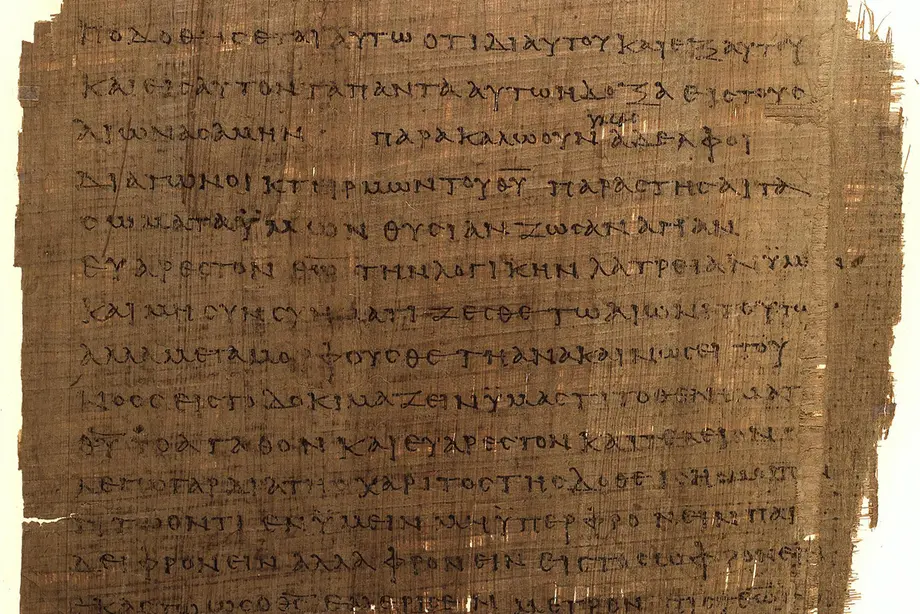 ΠΟΔΟΘΗϹΕΤΑΙ ΑΥΤΩ ΟΤΙ ΔΙ ΑΥΤΟΥ ΚΑΙ ΕΞ ΑΥΤΟΥ
ΚΑΙ ΕΙϹ ΑΥΤΟΝ ΤΑ ΠΑΝΤΑ ΑΥΤΩ Η ΔΟΞΑ ΕΙϹ ΤΟΥϹ
ΑΙΩΝΑϹ ΑΜΗΝ ΠΑΡΑΚΑΛΩ ΟΥΝ ΑΔΕΛΦΟΙ
ΔΙΑ ΤΩΝ ΟΙΚΤΙΡΜΩΝ ΤΟΥ Θ̅Υ̅ ΠΑΡΑϹΤΗϹΑΙ ΤΑ
ϹΩΜΑΤΑ ΫΜΩΝ ΘΥϹΙΑΝ ΖΩϹΑΝ ΑΓΙΑΝ
ΕΥΑΡΕϹΤΟΝ Θ̅Ω̅ ΤΗΝ ΛΟΓΙΚΗΝ ΛΑΤΡΕΙΑΝ
ΚΑΙ ΜΗ ϹΥΝϹΥΝΜΑΤΙΖΕϹΘΕ ΤΩ ΑΙΩΝΙ ΤΟΥΤΩ
ΑΛΛΑ ΜΕΤΑΜΟΡΦΟΥϹΘΕ ΤΗ ΑΝΑΚΑΙΝΩϹΕΙ ΤΟΥ
ΝΟΟϹ ΕΙϹ ΤΟ ΔΟΚΙΜΑΖΕΙΝ ΫΜΑϹ ΤΙ ΤΟ
Θ̅Υ̅ ΤΟ ΑΓΑΘΟΝ ΚΑΙ ΕΥΑΡΕϹΤΟΝ ΚΑΙ ΤΕΛΕΙΟΝ
ΓΑΡ ΔΙΑ ΤΗϹ ΧΑΡΙΤΟϹ ΤΗϹ
ΟΝΤΙ ΕΝ ΫΜΕΙΝ ΜΗ ΫΠΕΡΦΡΟΝΕΙΝ ΠΑΡ
ΔΕΙ ΦΡΟΝΕΙΝ ΑΛΛΑ ΦΡΟΝΕΙΝ ΕΙϹ ΤΟ
ΕΜΕΡΙϹΕΝ ΜΕΤΡΟΝ